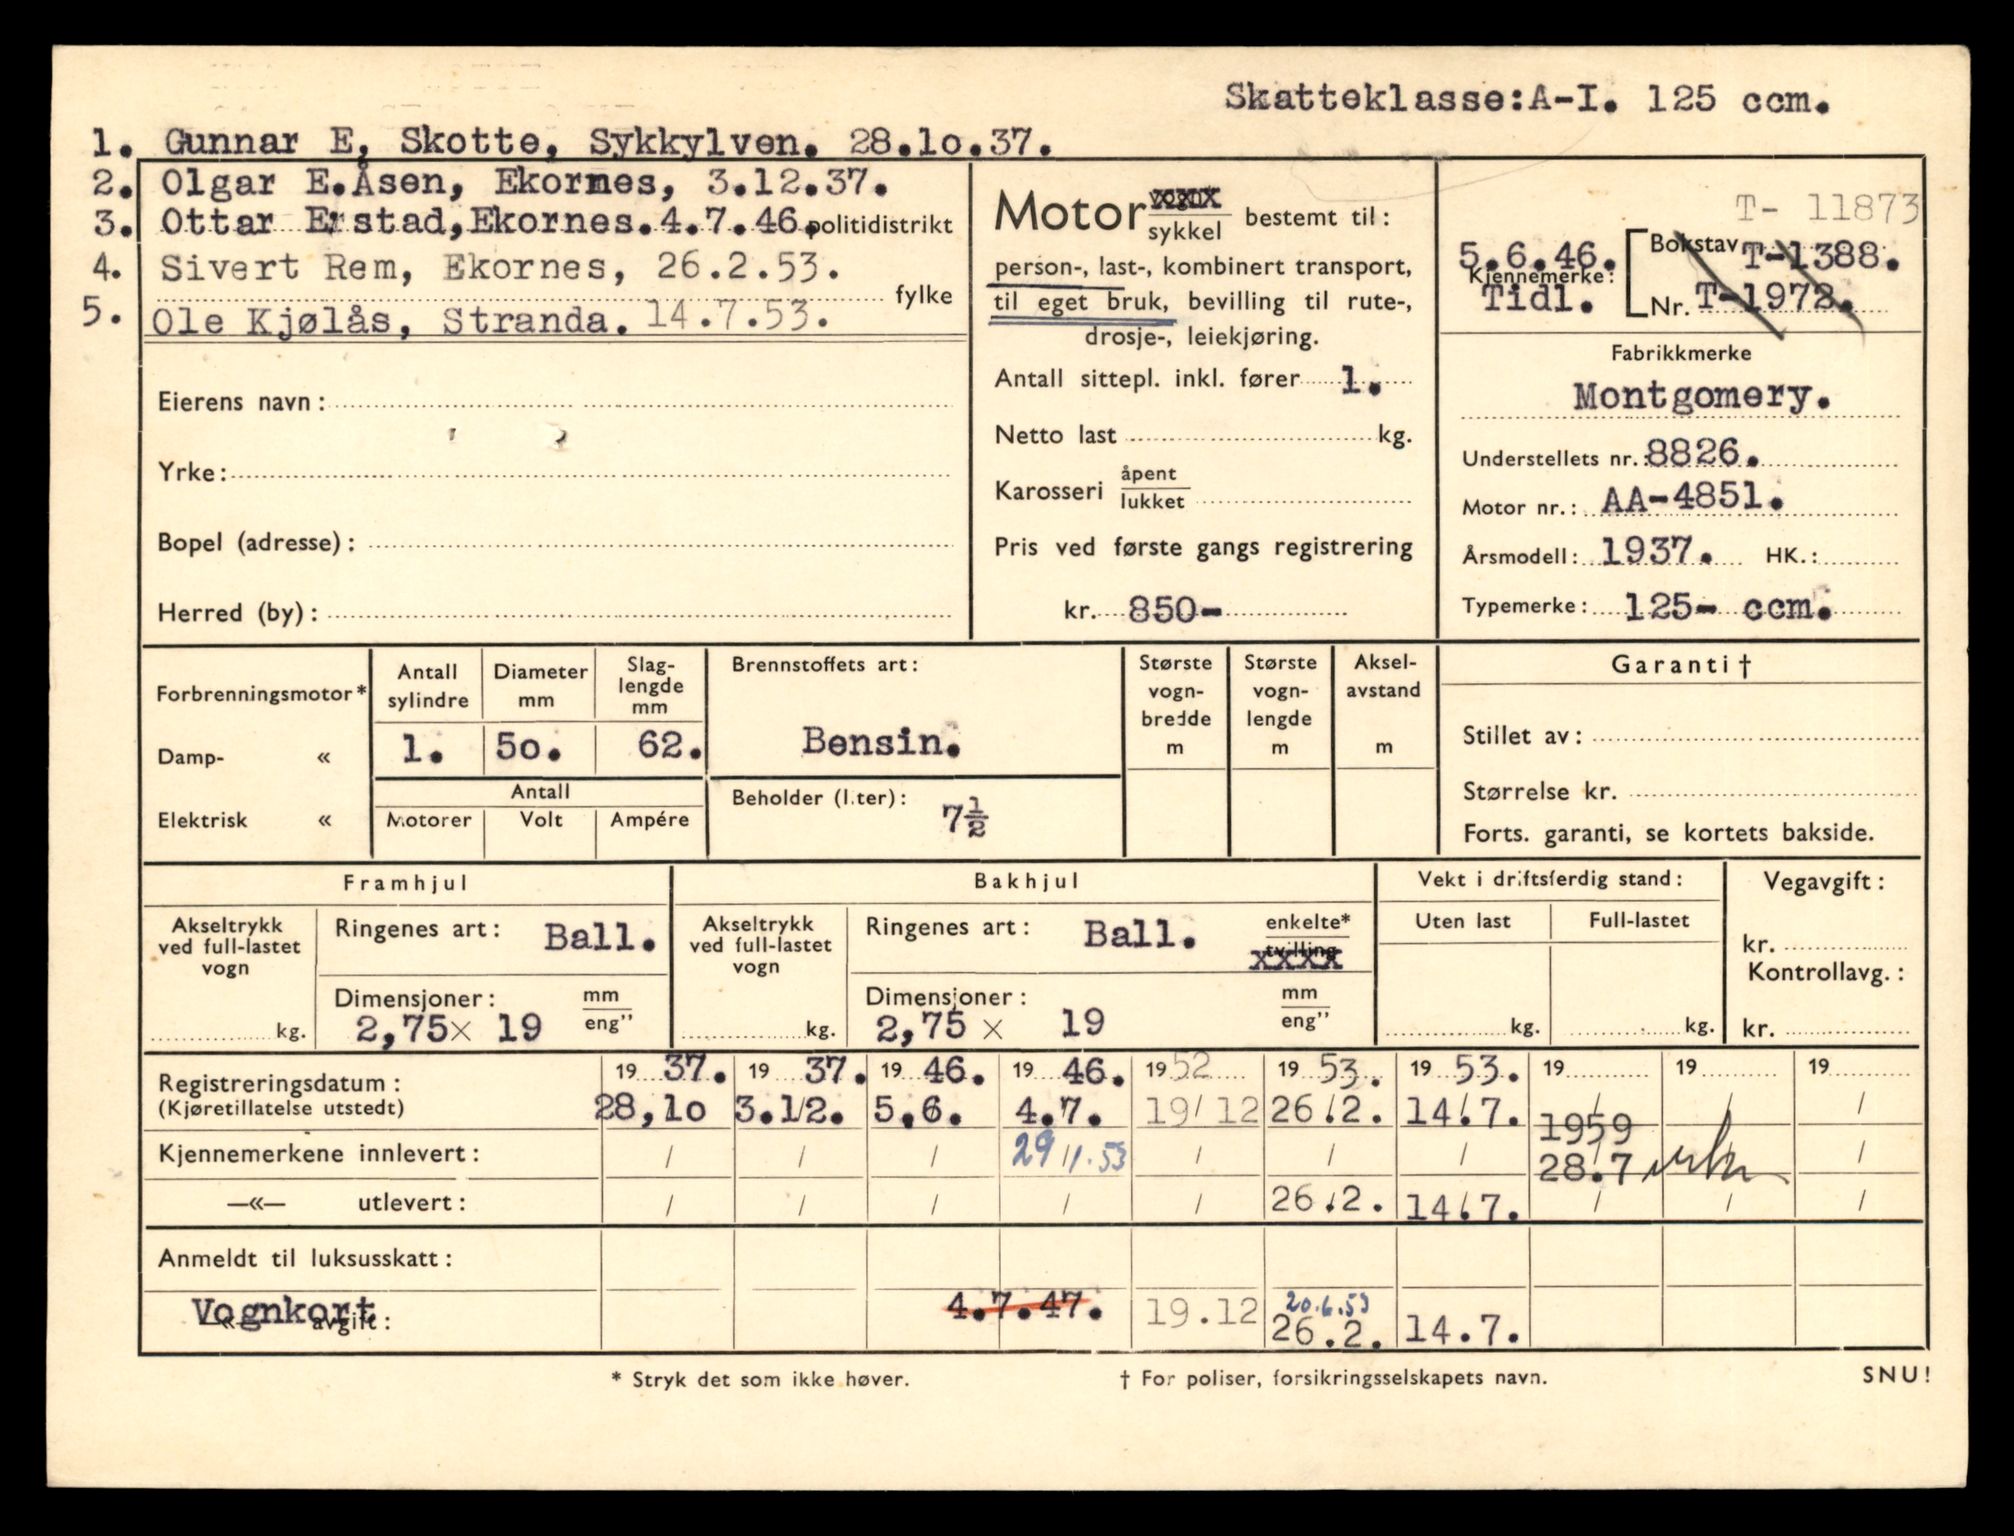 Skatteklasse:A-I. 125 ccm.
1. Gunnar E, Skotte, Sykkylven. 28.1o.37.
2. Olgar E.Åsen, Ekornes, 3.12.37.
3. Ottar Erstad,Ekornes.4.7.46. politidistrikt
4. Sivert Rem, Ekornes, 26.2.53.
fylke
5. Ole Kjølås, Stranda. 14.7.53.
Eierens navn:
Yrke:
Bopel (adresse):
Herred (by):
Motor vogn xxxx
sykkel bestemt til:
person-, last-, kombinert transport,
til eget bruk, bevilling til rute-,
drosje-, leiekjøring.
Antall sittepl. inkl. fører 1.
Netto last kg.
Karosseri åpent
lukket
Pris ved første gangs registrering
kr. 850-
T- 11873
5.6.46. Bokstav T-1388.
Kjennemerke:
Tidl. Nr. T-1972.
Fabrikkmerke
Montgomery.
Understellets nr.: 8826.
Motor nr.: AA-4851.
Årsmodell: 1937. HK.:
Typemerke: 125- ccm.
Forbrenningsmotor*
Damp- «
Elektrisk «
Antall sylindre
Diameter mm
Slag-lengde mm
1. 5o. 62.
Antall
Motorer Volt Ampére
Brennstoffets art:
Bensin.
Beholder (liter): 7½
Største vogn-bredde m
Største vogn-lengde m
Aksel-avstand m
Garanti†
Stillet av:
Størrelse kr.
Forts. garanti, se kortets bakside.
Framhjul
Akseltrykk ved full-lastet vogn
kg.
Ringenes art: Ball.
Dimensjoner: mm
2,75x 19 eng"
Bakhjul
Akseltrykk ved full-lastet vogn
kg.
Ringenes art: Ball. enkelte*
tvilling xxxx
Dimensjoner: mm
2,75 x 19 eng"
Vekt i driftsferdig stand:
Uten last Full-lastet
kg. kg.
Vegavgift:
kr.
Kontrollavg.:
kr.
Registreringsdatum: 19 37. 19 37. 19 46. 19 46. 19 52 19 53. 19 53. 19 19 19
(Kjøretillatelse utstedt) 28,1o 3.1/2. 5.6. 4.7. 19/12 26/2. 14/7. / / /
1959
Kjennemerkene innlevert: / / / 29/11.53 / / / 28.7 /
—«— utlevert: / / / / / 26/2. 14/7. / / /
Anmeldt til luksusskatt:
Vognkort
—«— avgift: 4.7.47. 19.12 20.6.53 26.2. 14.7.
* Stryk det som ikke høver. † For poliser, forsikringsselskapets navn. SNU!